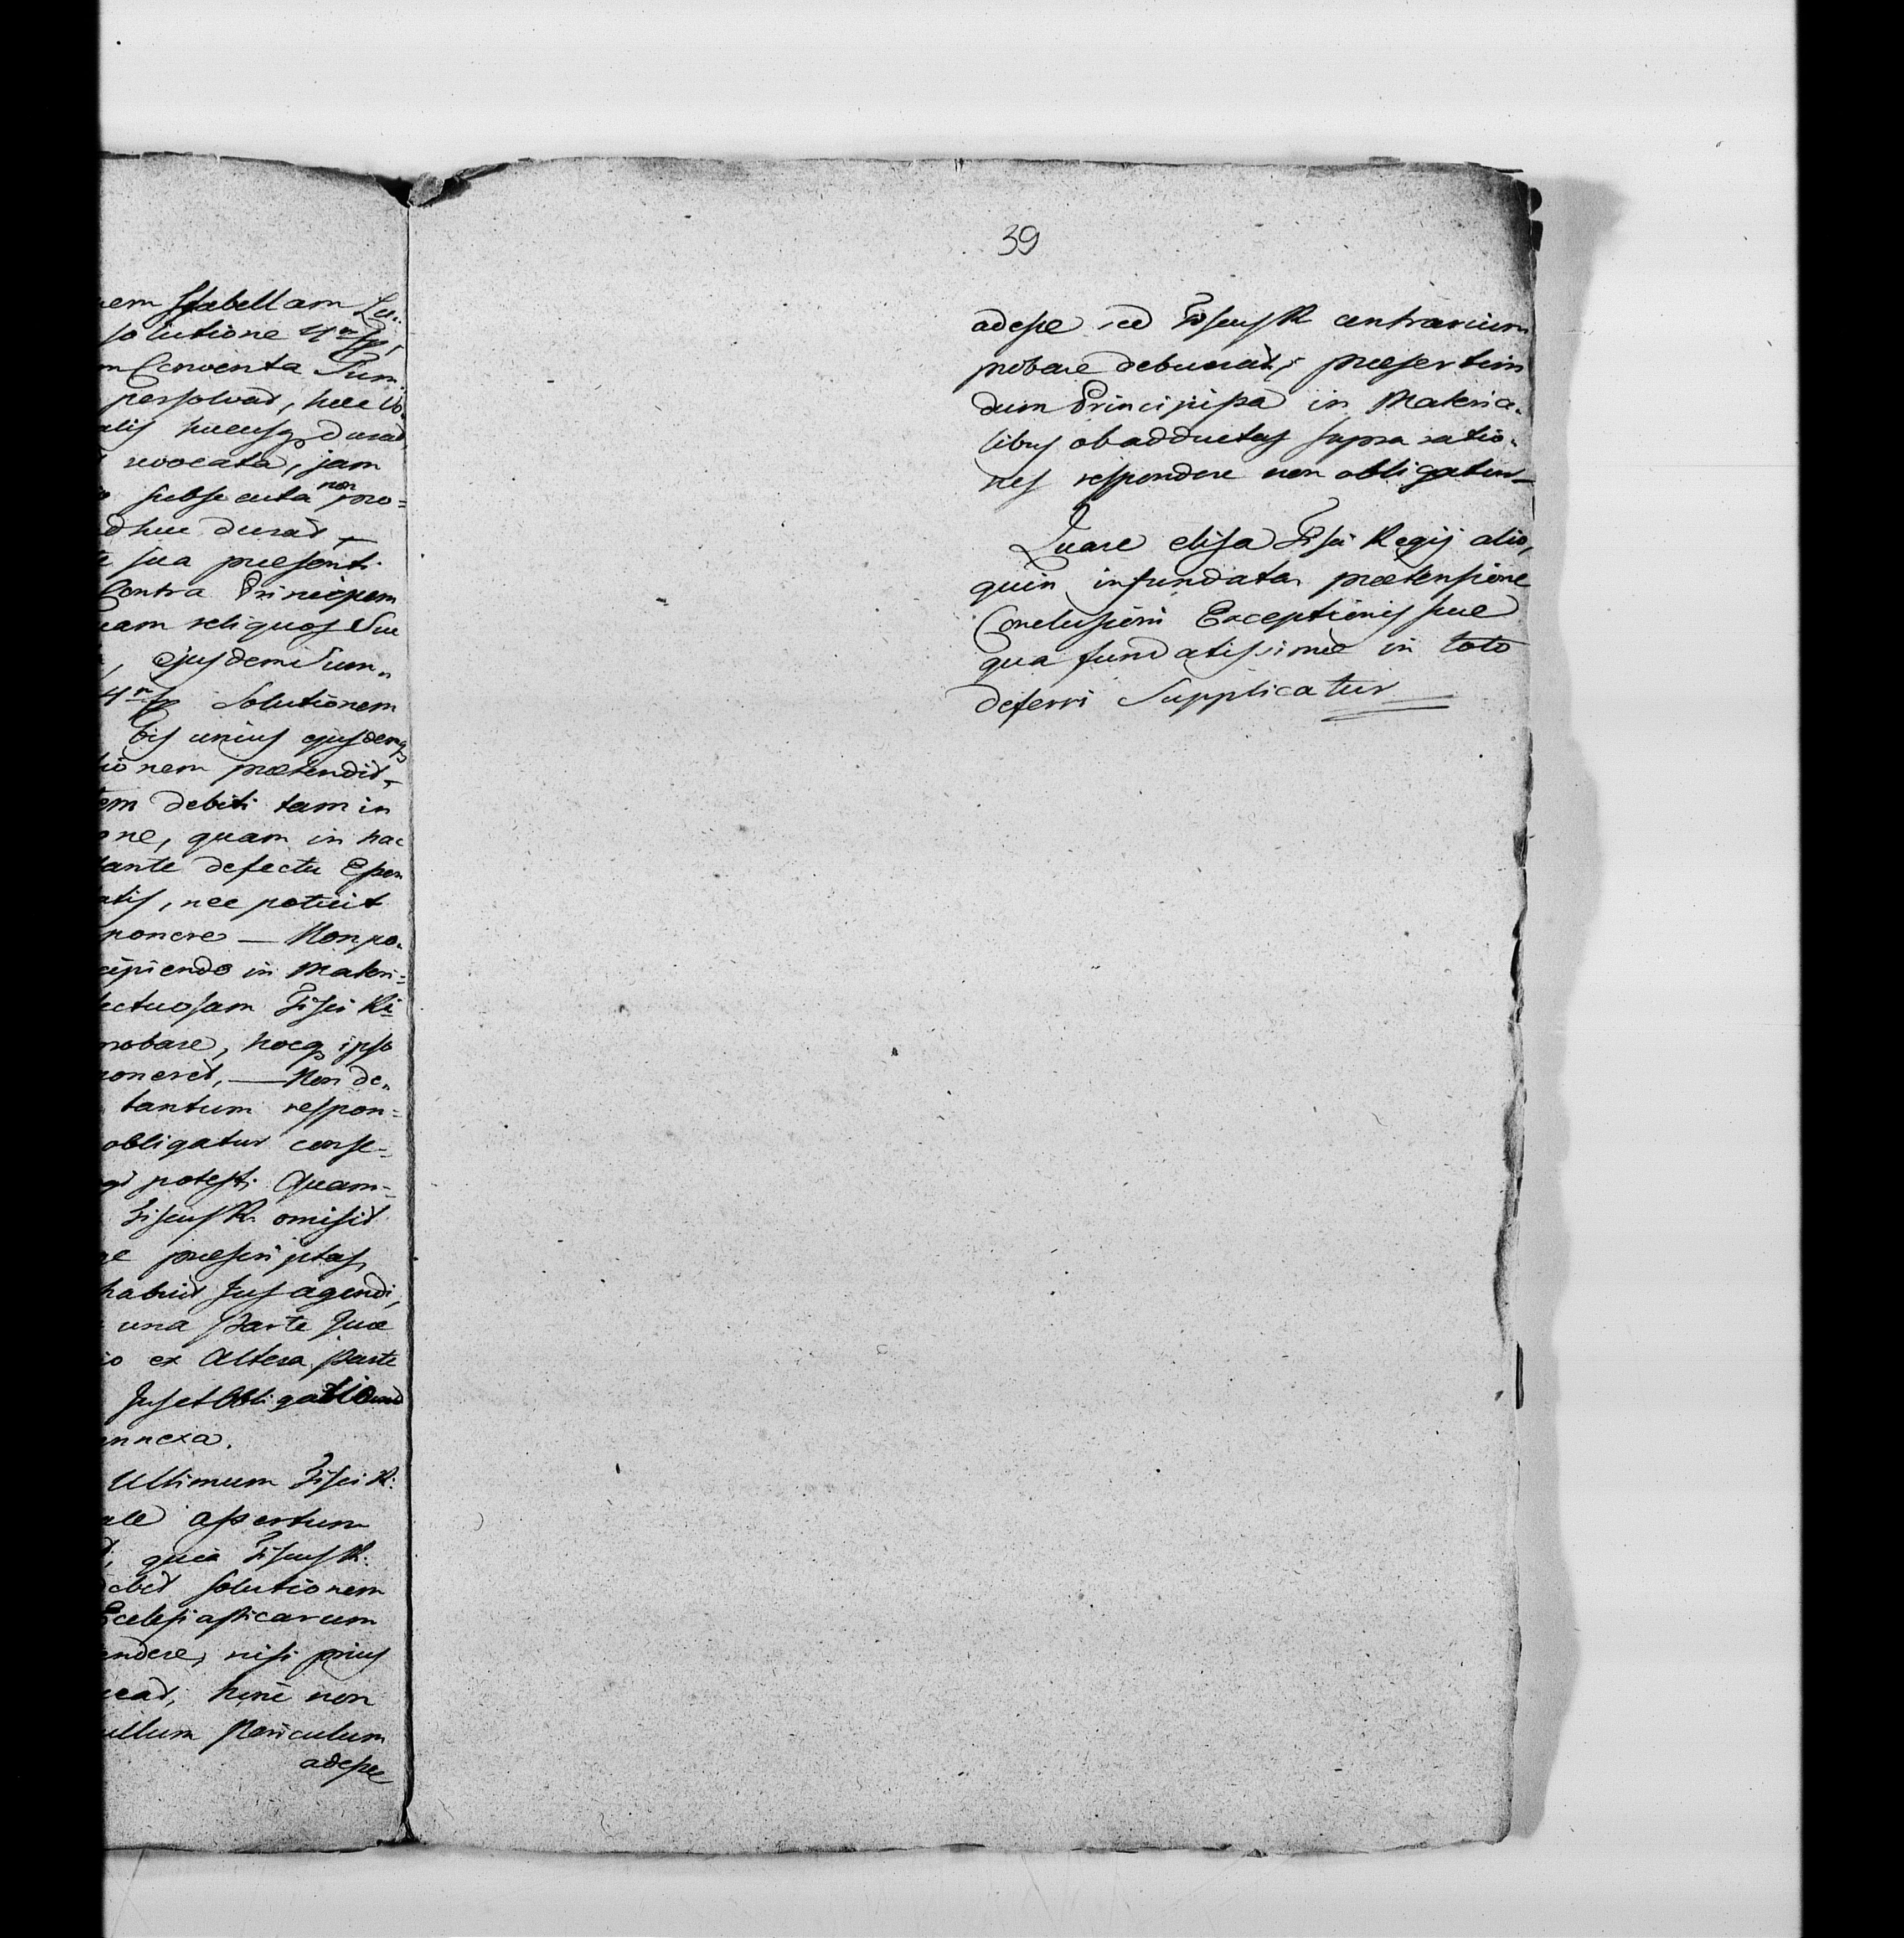 nem Isabellam Lu-
solutione 4m
Conventa Sum
persolvat, haec
alis hucusq durat
revocata, jam
subsecuta non pro=
dhuc durat
sua praesenti
Contra Principem
eam reliquos Suc
ejusdem Sum,,
4m Solutionem
bis unius ejusdemq
tionem praetendit
em debiti tam in
one, quam in hac
tante defectu Essen
atis, nec potuit
ponere — Non po,,
cipiendo in Materi=
ectuosam Fisci Ri
probare, hocq ipso
poneret, — Non de,,
tantum respon=
obligatur conse=
gi potest. Quam=
Fiscus R. omisit
praescriptas
habuit Jus agendi,
una Parte Jure
io ex Altera parte
Jus et Obligatio
nnexa.
Ultimum Fisci R:
ale assertum
quia Fiscus R:
debet solutionem
Ecclesiasticarum
endere, nisi prius
eat, hinc non
ullum Periculum
adesse
39
adesse sed Fiscus R contrarium
probare debuerat, praesertim
dum Principissa in Materia-
libus ob adductas supra ratio-
nes respondere non obligatur—
Quare elisa Fisci Regij alio,
quin infundata praetensione
Conclusioni Exceptionis suae
qua fundatissimae in toto
deferri Supplicatur